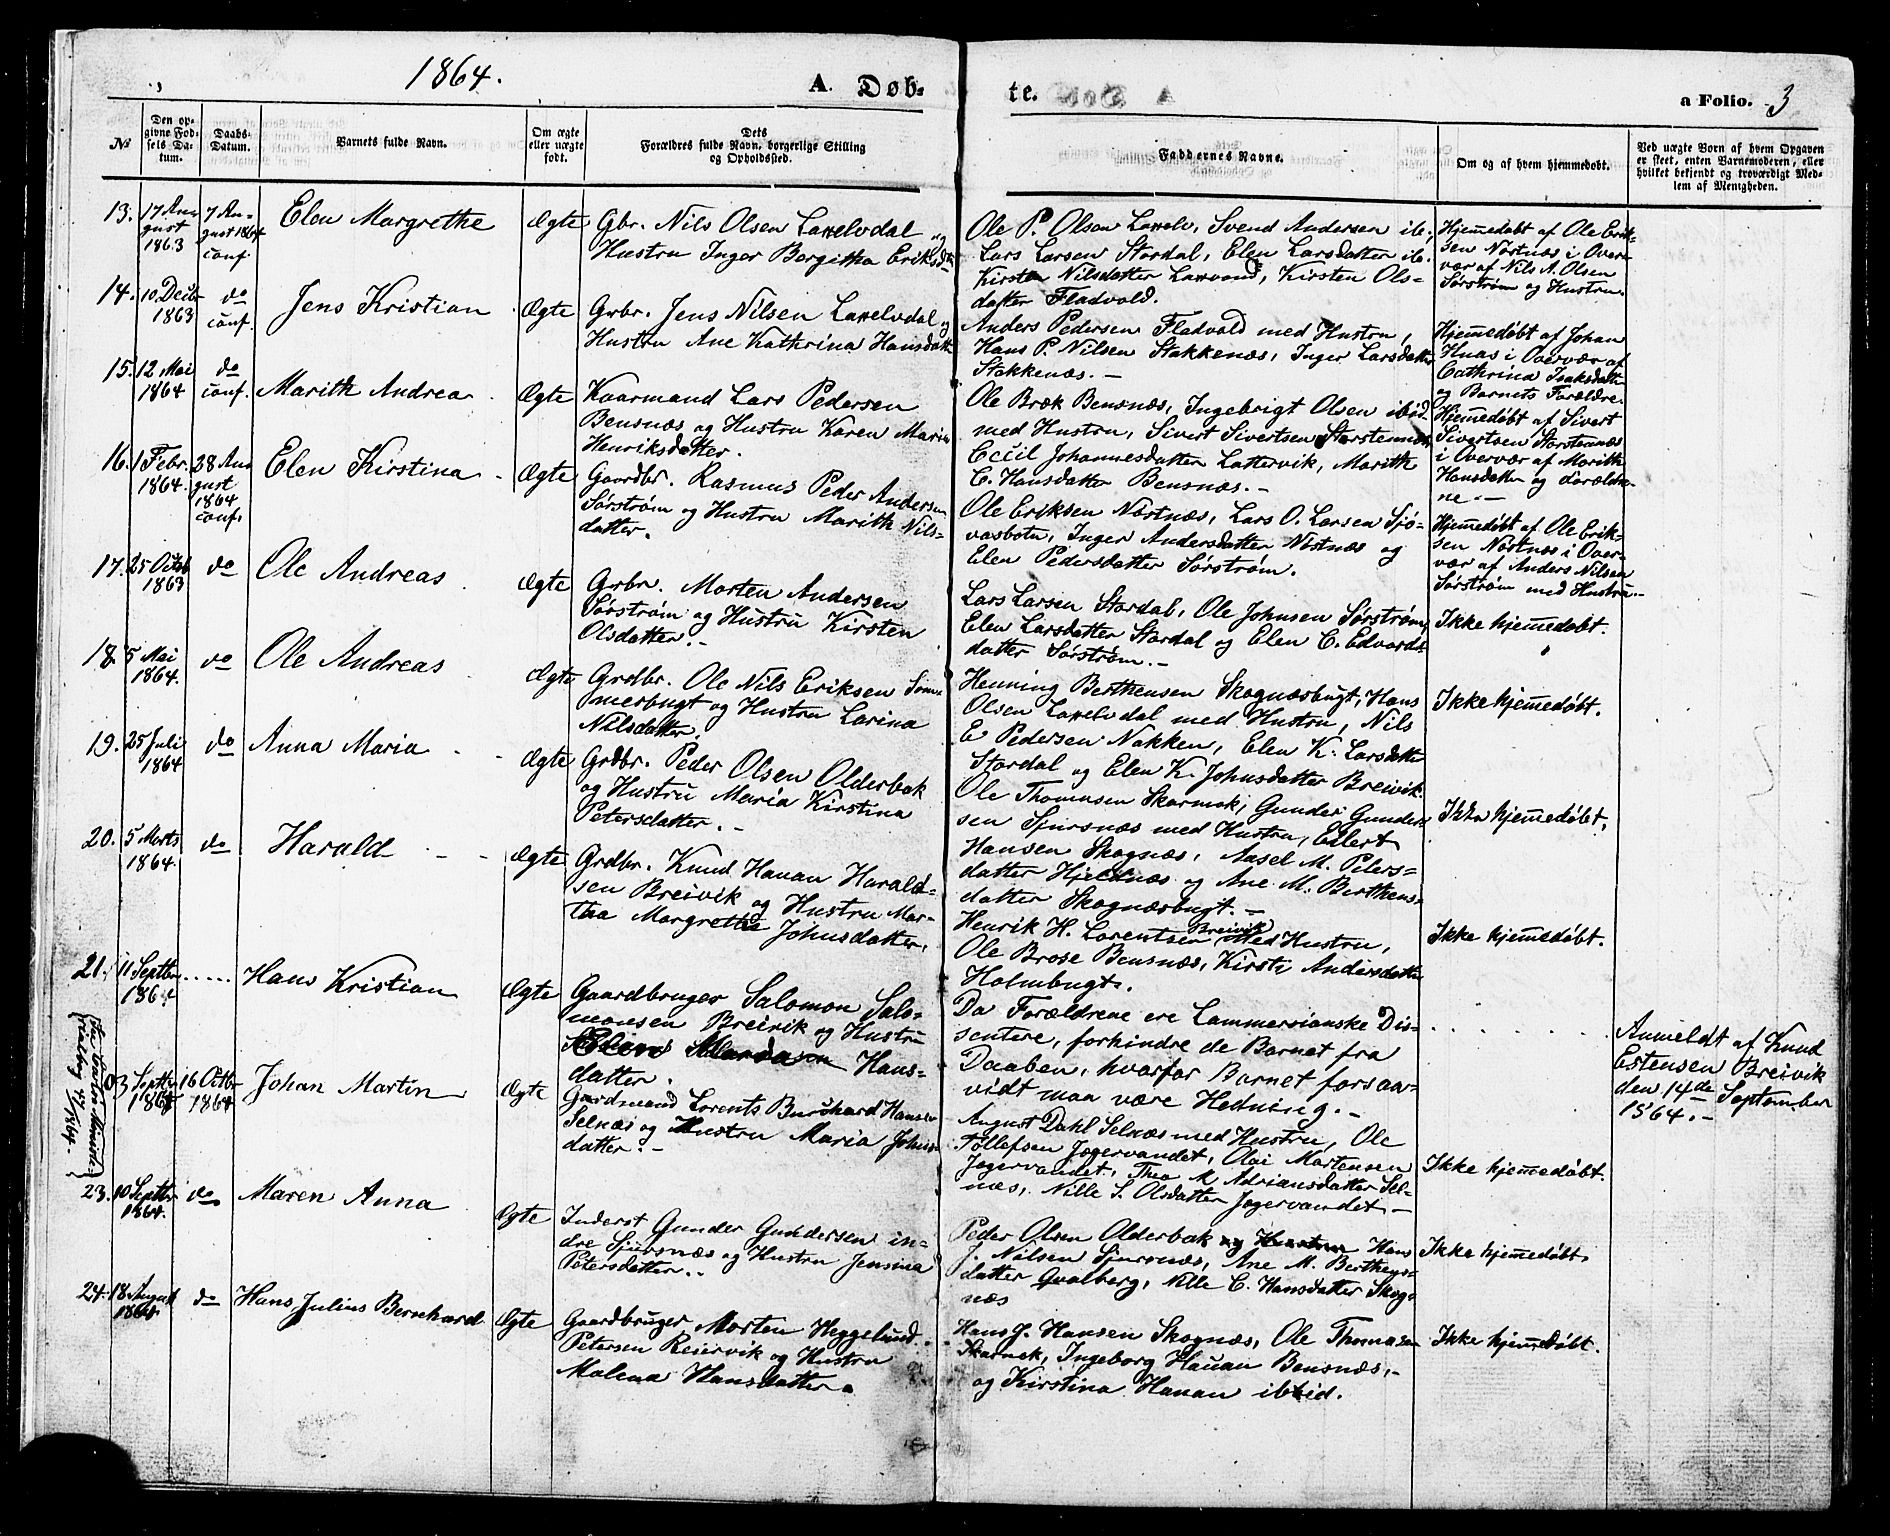 1864.
A. Døb-
te.
a Folio. 3
№
Den op-
givne Fød-
sels Da-
tum.
Daabs-
Datum.
Barnets fulde Navn.
Om ægte
eller uægte
født.
Dets
Forældres fulde Navn, borgerlige Stilling
og Opholdssted.
Faddernes Navne.
Om og af hvem hjemmedøbt.
Ved uægte Børn af hvem Opgaven
er skeet, enten Barnemoderen, eller
hvilket bekjendt og troværdigt Med-
lem af Menigheden.
13.
17 Au-
gust
1863
7 Au-
gust 1864
conf.
Elen Margrethe
Ægte
Gbr. Nils Olsen Laxelvdal og
Hustru Inger Bergitha Eriksdtr
Ole P. Olsen Laxelv, Svend Andersen ib.,
Lars Larsen Stordal, Elen Larsdatter ib.,
Kirsten Nilsdatter Laxvand, Kirsten Ols-
datter Fladvold.
Hjemedøbt af Ole Erik-
sen Nørtnæs i Over-
vær af Nils A. Olsen
Sørstrøm og Hustru.
14.
10 Decbr
1863
do
conf.
Jens Kristian
Ægte
Grbr. Jens Nilsen Laxelvdal og
Hustru Ane Kathrina Hansdatter
Anders Pedersen Fladvold med Hustru,
Hans P. Nilsen Stakkenæs, Inger Larsdatter
Stakkenæs.-
Hjemedøbt af Johan
Huas i Overvær af
Cathrina Isaksdatter
og Barnets Forældre.
15.
12 Mai
1864
do
conf.
Marith Andrea
Ægte
Kaarmand Lars Pedersen
Bensnæs og Hustru Karen Maria
Henriksdatter.
Ole Bræk Bensnæs, Ingebrigt Olsen ibid.
med Hustru, Sivert Sivertsen Storstennæs,
Ecciil Johannesdatter Lattervik, Marith
C. Hansdatter Bensnæs.-
Hjemedøbt af Sivert
Sivertsen Storstennæs
i Overvær af Marith
Hansdatter og Forældre-
ne.-
16.
1 Febr.
1864.
28 Au-
gust
1864
conf.
Elen Kirstina
Ægte
Gaardbr. Rasmus Peder Andersen
Sørstrøm og Hustru Marith Nils-
datter.
Ole Eriksen Nørtnæs, Lars O. Larsen Sjø-
vasbotn, Inger Andersdatter Nistnæs og
Elen Pedersdatter Sørstrøm.
Hjemedøbt af Ole Erik-
sen Nørtnæs i Over-
vær af Anders Nilsen
Sørstrøm med Hustru.-
17.
25 Octbr
1863
do
Ole Andreas
Ægte
Grbr. Morten Andersen
Sørstrøm og Hustru Kirsten
Olsdatter.-
Lars Larsen Stordal, Ole Johnsen Sørstrøm,
Elen Larsdatter Stordal og Elen C. Edvards-
datter Sørstrøm.-
Ikke hjemedøbt.
18.
5 Mai
1864.
do
Ole Andreas
Ægte
Grdbr. Ole Nils Eriksen Som-
merbugt og Hustru Larina
Nilsdatter.
Henning Berthensen Skognæsbugt, Hans
Olsen Laxelvdal med Hustru, Nils
E Pedersen Nakken, Elen K. Larsdatter
Stordal og Elen K. Johnsdatter Breivik.
Ikke hjemedøbt.
19.
25 Juli
1864
do
Anna Maria
Ægte
Grdbr. Peder Olsen Olderbak
og Hustru Maria Kirstina
Petersdatter.-
Ole Thomasen Skarmok, Gunder Gunder-
sen Sjursnæs med Hustru, Eilert
Hansen Skognæs, Aasel M. Peters-
datter Hjelnæs og Ane M. Berthens-
datter Skognæsbugt.-
Ikke hjemedøbt.
20.
5 Marts
1864.
do
Harald
Ægte
Grdbr. Knud Hanan Harald-
sen Breivik og Hustru Mar-
tha Margretha Johnsdatter.
Henrik H. Lorentsen Breivik med Hustru,
Ole Brose Bensnæs, Kirsti Andersdatter
Holmbugt.
Ikke hjemedøbt.
21.
11 Septbr
1864
Hans Kristian
Ægte
Gaardbruger Salomon Salo-
monsen Breivik og Hustru
Hans-
datter.
Da Forældrene ere Lammersianske Dis-
sentere, forhindre de Barnet fra
Daaben, hvorfor Barnet forsaa-
vidt maa være Hedning.-
Anmeldt af Knud
Estensen Breivik
den 14de September
1864.-
3 Septbr
1864
16 Octbr
1864
Johan Martin
Ægte
Gaardmand Lorents Burchard Hansen
Selnæs og Hustru Maria Johns-
datter.-
August Dahl Selnæs med Hustru, Ole
Tollefsen Jægervandet, Olai Mortensen
Jægervandet, Thea M Adriansdatter Sel-
næs, Nille S. Olsdatter Jægervandet-
Ikke hjemedøbt.
23.
10 Septbr
1864.
do
Maren Anna
Ægte
Inderst Gunder Gundersen in-
dre Sjursnæs og Hustru Jensina
Petersdatter.
Peder Olsen Olderbak og Hustru Hans
J. Nilsen Sjursnæs, Ane M. Berthens-
datter Qvalberg, Nille C. Hansdatter Skog-
næs
Ikke hjemedøbt.
24.
18 August
1864.
do
Hans Julius Bernhard
Ægte
Gaardbruger Morten Heggelund
Petersen Reiervik og Hustru
Malena Hansdatter
Hans J. Hansen Skognæs, Ole Thomasen
Skarmok, Ingeborg Hauan Bensnæs,-
og Kirstina Hanan ibid.
Ikke hjemedøbt.